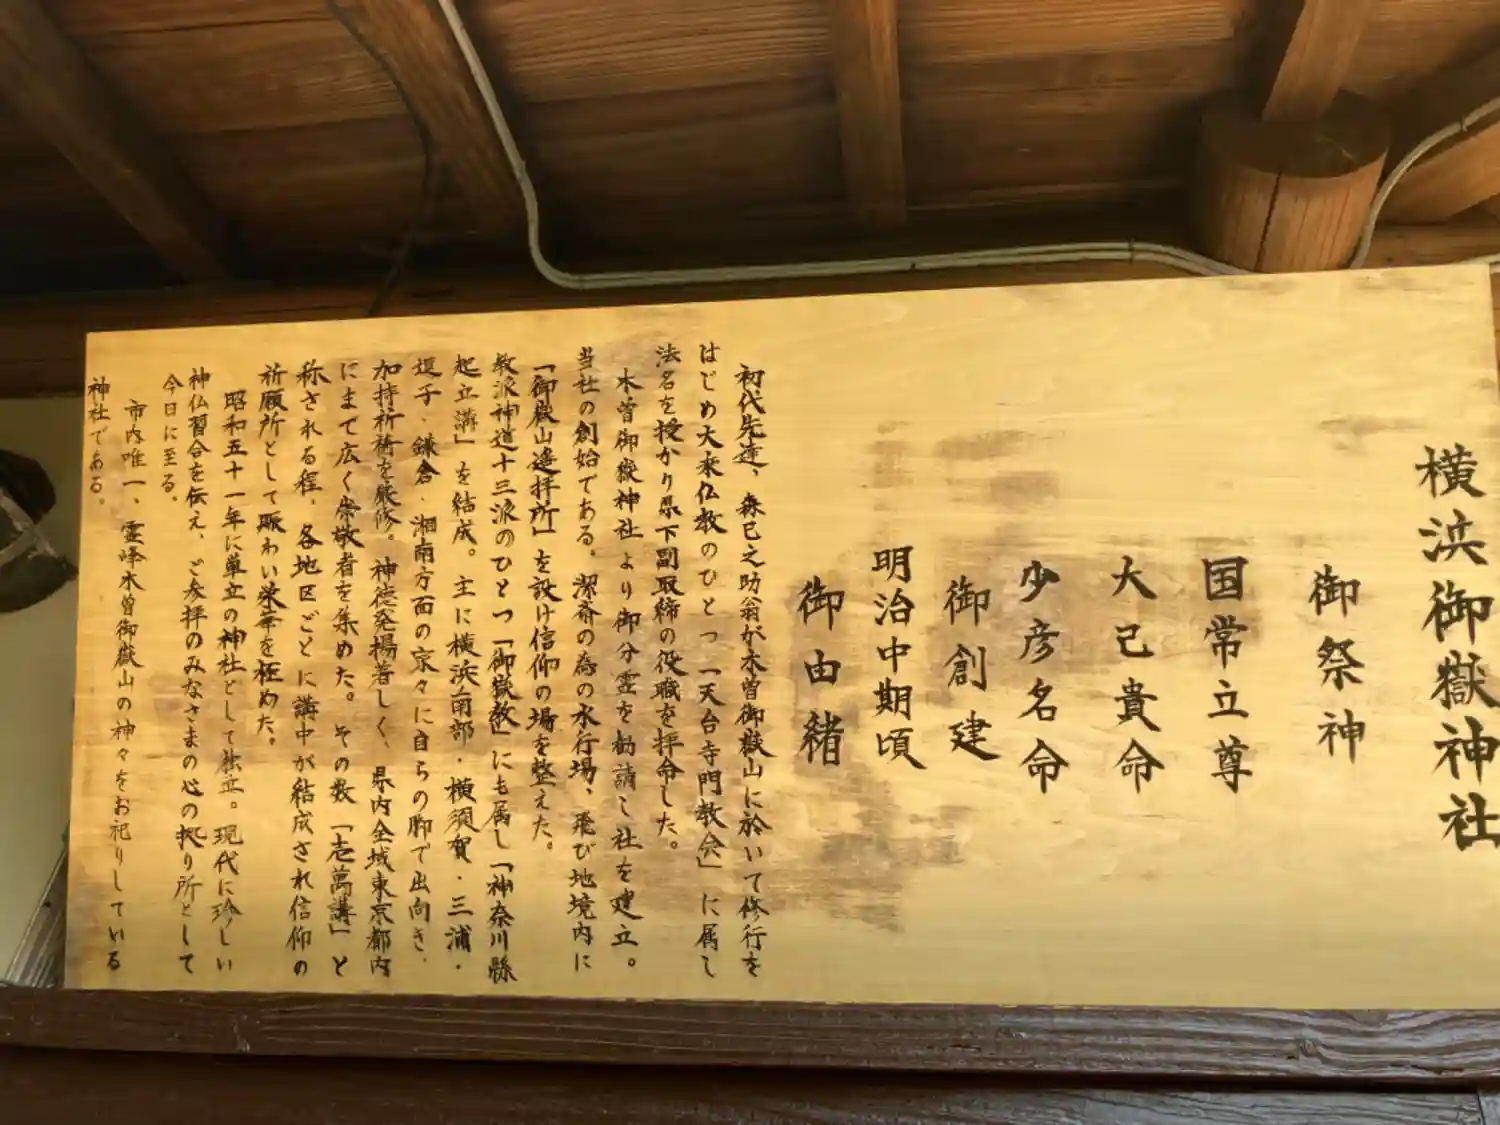 横浜御嶽神社
御祭神
国常立尊
大己貴命
少彦名命
御創建
明治中期頃
御由緒
初代先達、森巳之助翁が木曽御嶽山に於いて修行を
はじめ大乗仏教のひとつ「天台寺門教会」に属し
法名を授かり県下副取締の役職を拝命した。
木曽御嶽神社より御分霊を勧請し社を建立。
当社の創始である。潔斎の為の水行場、飛び地境内に
「御嶽山遙拝所」を設け信仰の場を整えた。
教派神道十三派のひとつ「御嶽教」にも属し「神奈川縣
起立講」を結成。主に横浜南部・横須賀・三浦・
逗子・鎌倉・湘南方面の家々に自らの脚で出向き、
加持祈祷を厳修。神徳発揚著しく、県内全域東京都内
にまで広く崇敬者を集めた。その数「壱萬講」と
称される程、各地区ごとに講中が結成され信仰の
祈願所として賑わい栄華を極めた。
昭和五十一年に単立の神社として独立。現代に珍しい
神仏習合を伝え、ご参拝のみなさまの心の拠り所として
今日に至る。
市内唯一、霊峰木曽御嶽山の神々をお祀りしている
神社である。